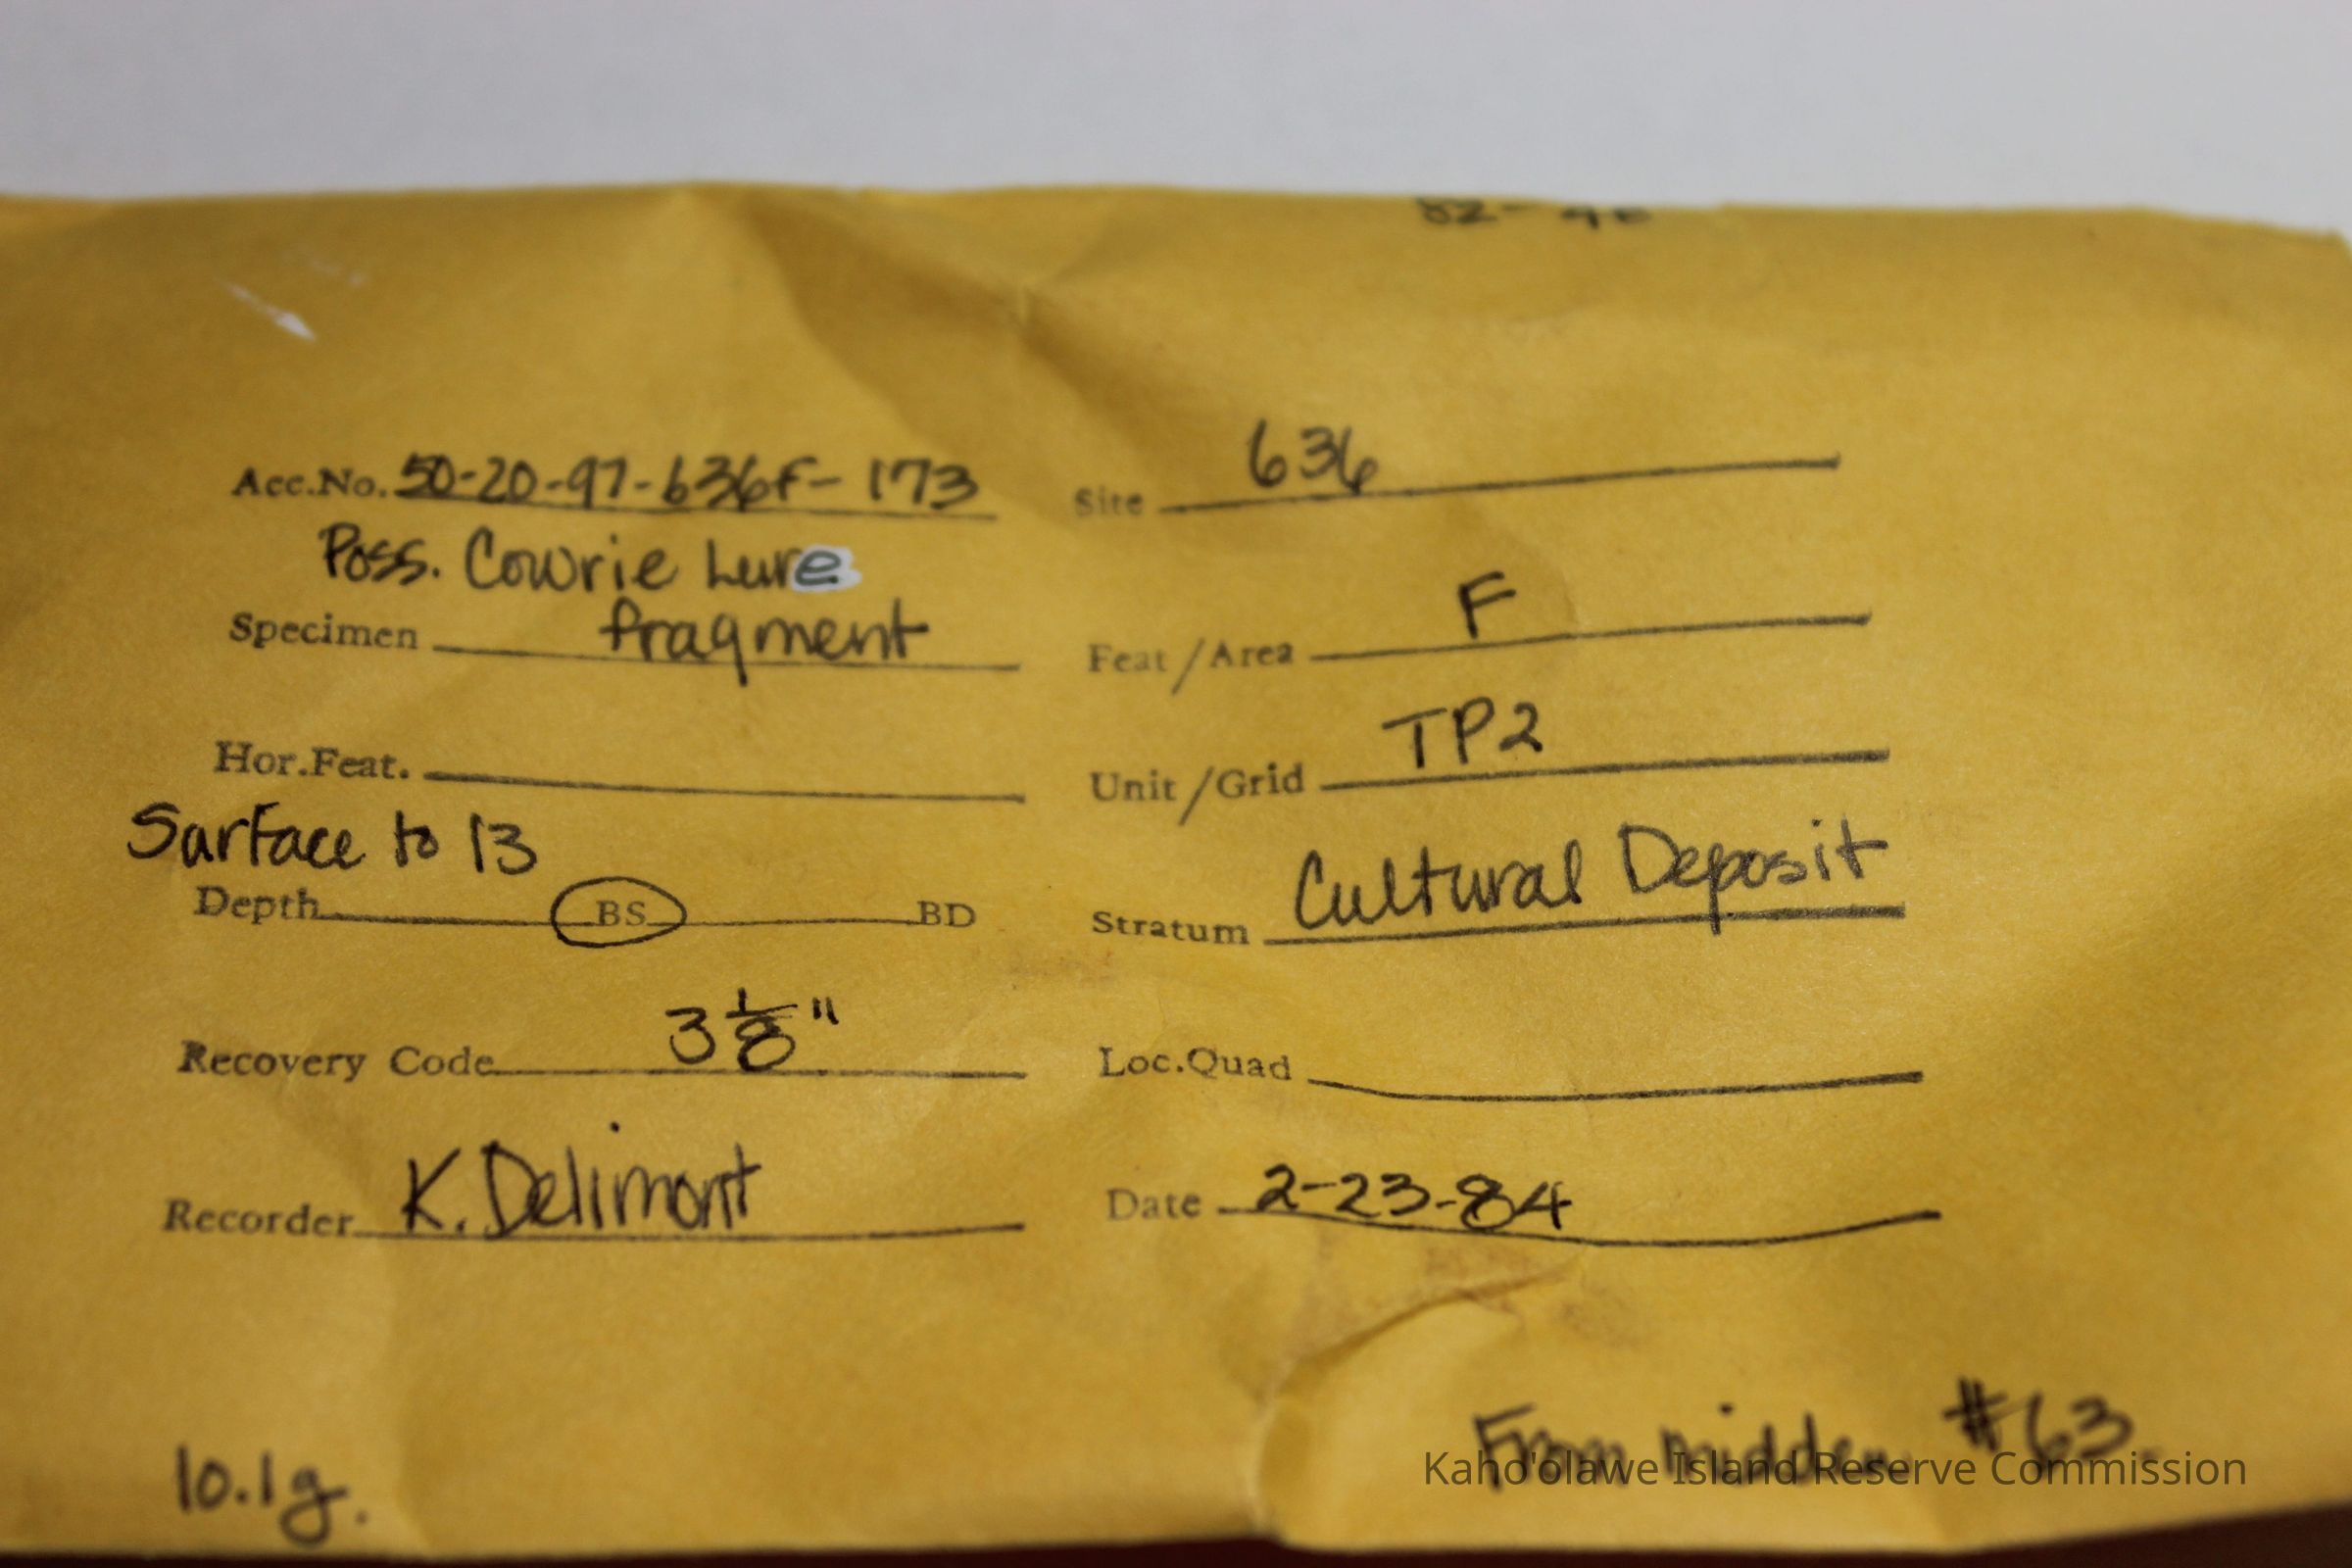 Acc.No. 50-20-97-636F-173 Site 636
Poss. Cowrie Lure
Specimen fragment Feat/Area F
Hor.Feat. Unit/Grid TP2
Surface to 13
Depth BS BD Stratum Cultural Deposit
Recovery Code 3 1/8" Loc.Quad
Recorder K. Delimont Date 2-23-84
From midden #63
10.1g.
Kaho'olawe Island Reserve Commission